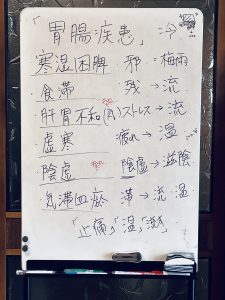 「胃腸疾患」⇒
寒湿困脾 邪 梅雨
食滞 残→流
肝胃不和(気)ストレス→流
虚寒 疲れ→温
陰虚 陰虚→滋陰
気滞血瘀 滞→流 温
「止痛」「温」